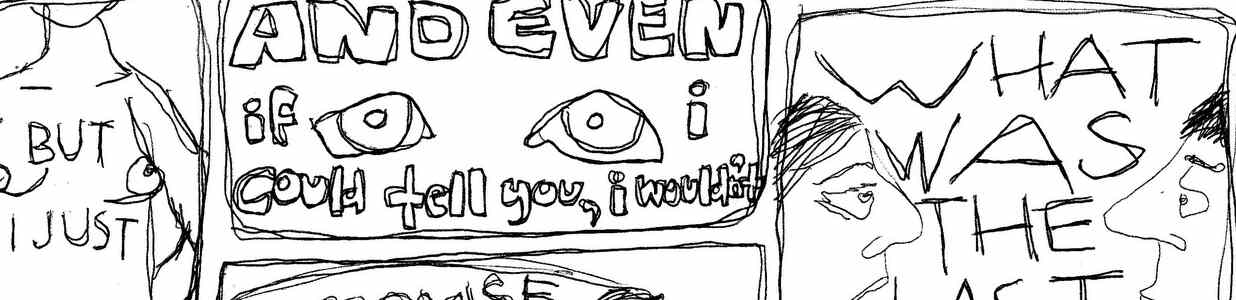 BUT
I JUST
AND EVEN
if i
could tell you, i wouldn't
WHAT
WAS
THE